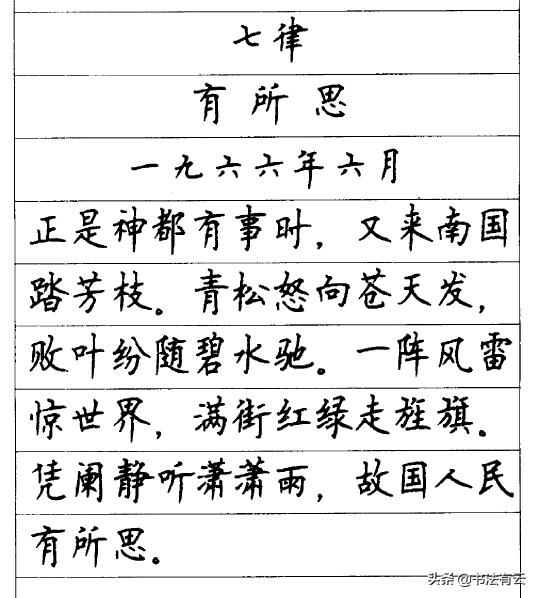 七律
有所思
一九六六年六月
正是神都有事时，又来南国
踏芳枝。青松怒向苍天发，
败叶纷随碧水驰。一阵风雷
惊世界，满街红绿走旌旗。
凭阑静听潇潇雨，故国人民
有所思。
头条 @书法有云